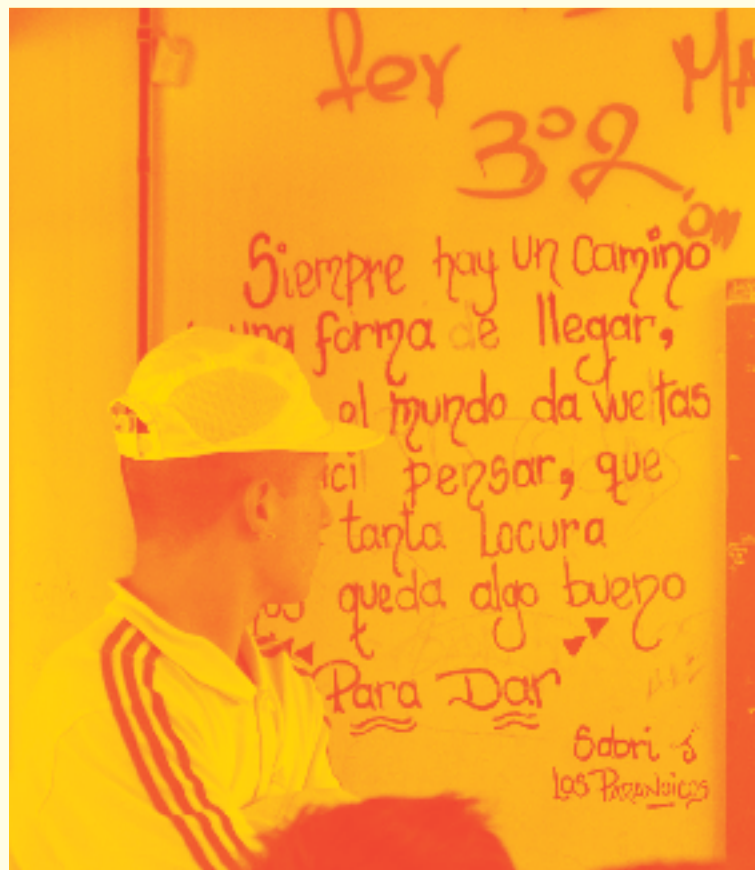 fer MA
3º2
ón
Siempre hay un camino
una forma de llegar,
el mundo da vueltas
pensar, que
tanta Locura
queda algo bueno
Para Dar
Los Paranoicos